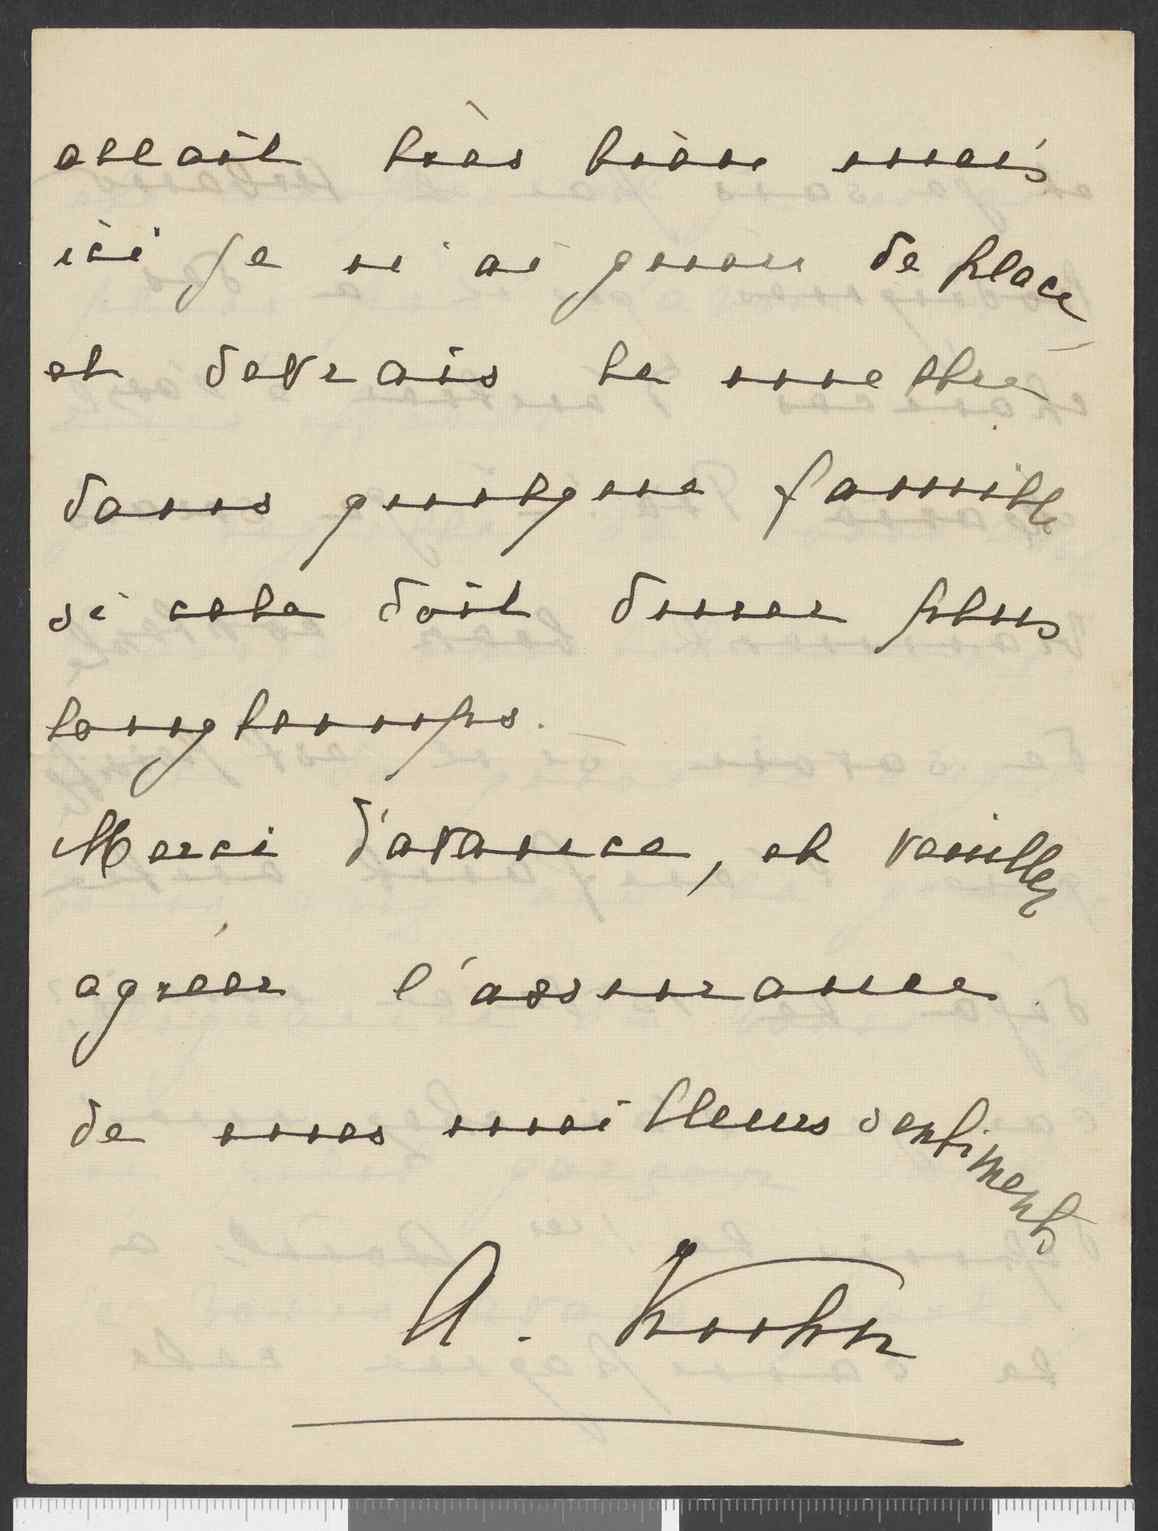 allait très bien mais
ici je n'ai guère de place
et devrais le mettre
dans quelque famille
si cela doit durer plus
longtemps.
Merci d'avance, et veuillez
agréer l'assurance
de mes meilleurs sentiments
A.